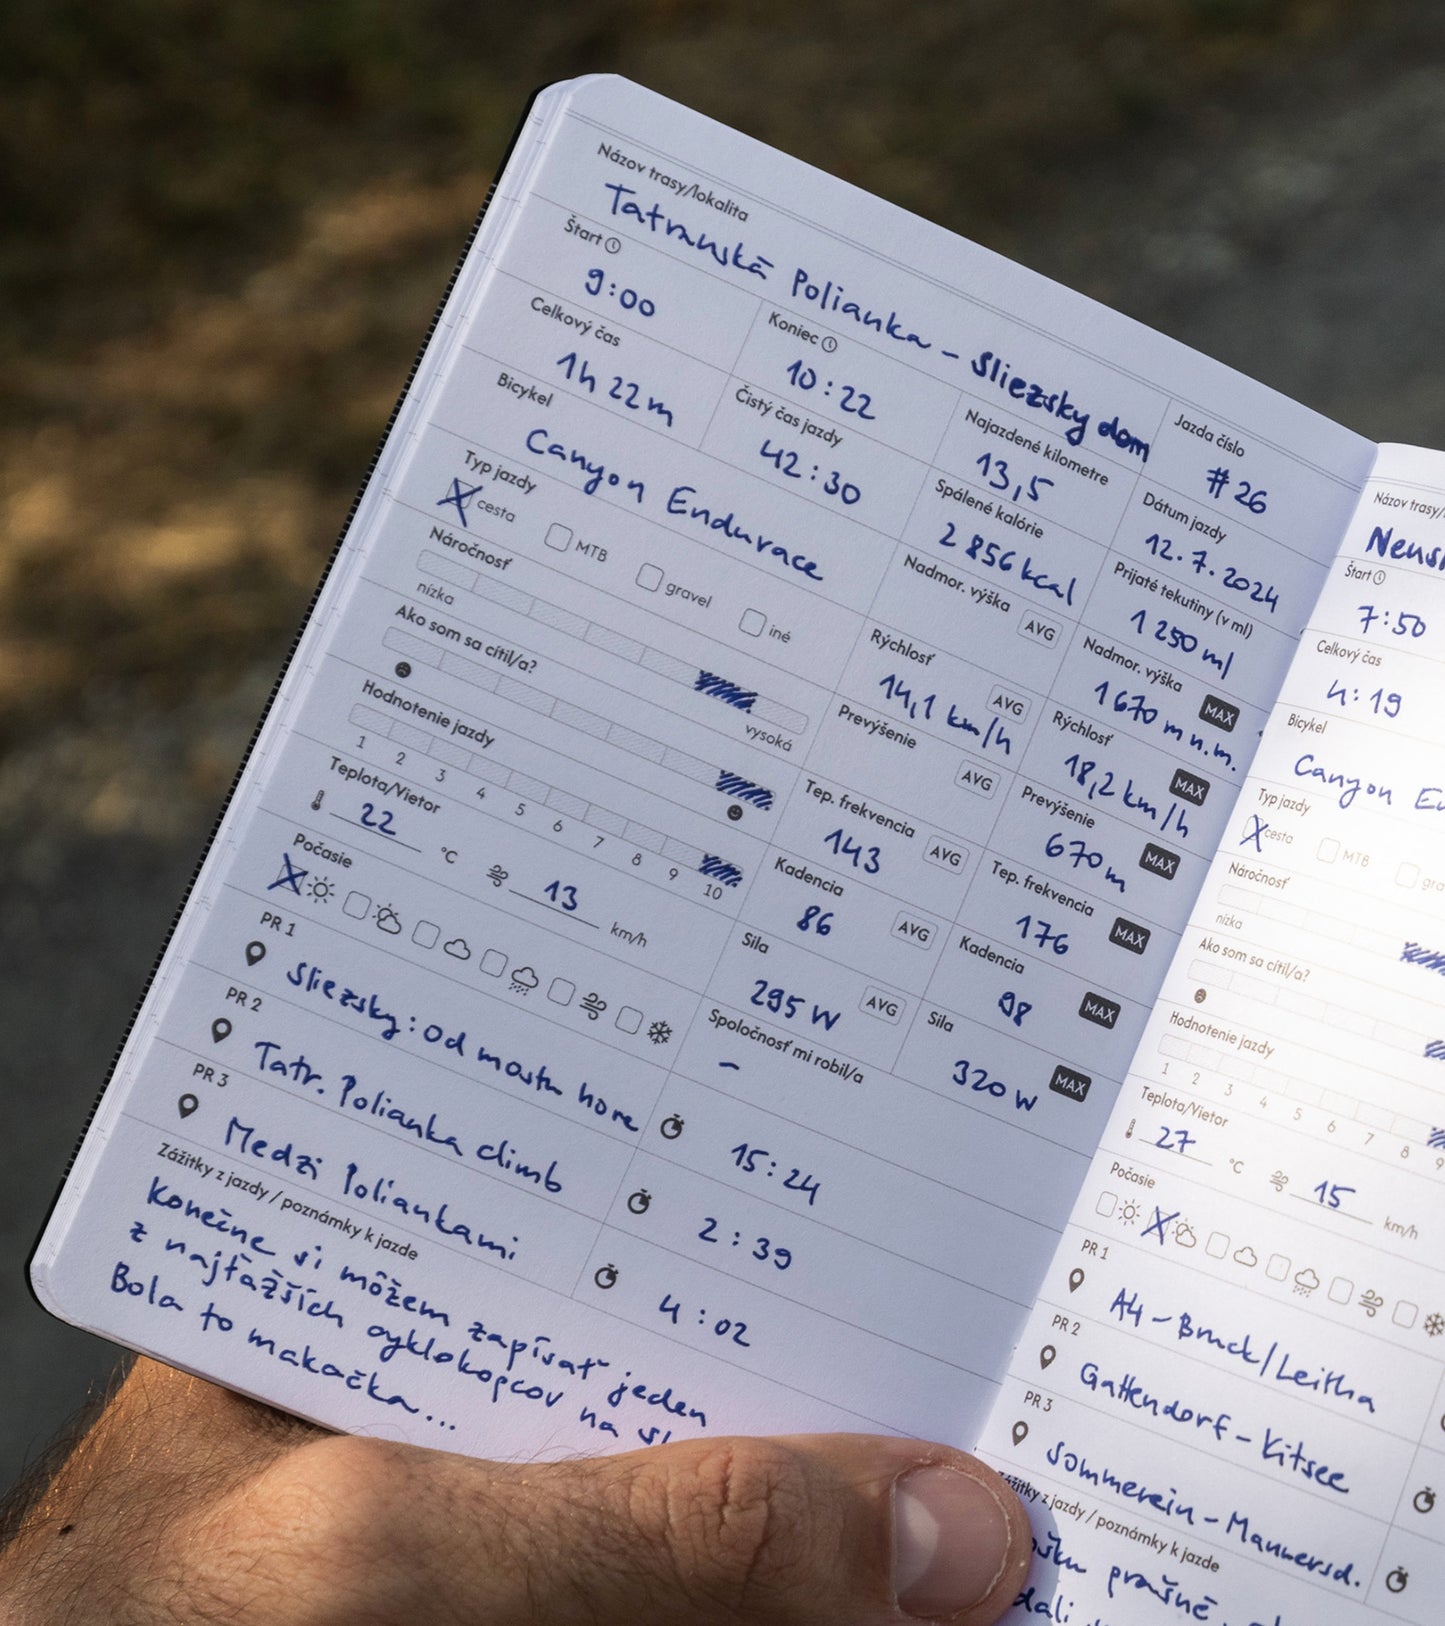 Názov trasy/lokalita
Tatranská Polianka - Sliezsky dom
Jazda číslo
#26
Štart
9:00
Koniec
10:22
Najazdené kilometre
13,5
Dátum jazdy
12.7.2024
Celkový čas
1h 22m
Čistý čas jazdy
42:30
Spálené kalórie
2 856 kcal
Prijaté tekutiny (v ml)
1 250 ml
Bicykel
Canyon Endurace
Nadmor. výška AVG
Nadmor. výška MAX
1670 m n.m.
Typ jazdy
cesta MTB gravel iné
Rýchlosť AVG
14,1 km/h
Rýchlosť MAX
18,2 km/h
Náročnosť
nízka vysoká
Prevýšenie AVG
Prevýšenie MAX
670 m
Ako som sa cítil/a?
Tep. frekvencia AVG
143
Tep. frekvencia MAX
176
Hodnotenie jazdy
1 2 3 4 5 6 7 8 9 10
Kadencia AVG
86
Kadencia MAX
98
Teplota/Vietor
22 °C 13 km/h
Sila AVG
295 W
Sila MAX
320 W
Počasie
Spoločnosť mi robil/a
-
PR 1
Sliezsky: Od mostu hore
15:24
PR 2
Tatr. Polianka climb
2:39
PR 3
Medzi Poliankami
4:02
Zážitky z jazdy / poznámky k jazde
Konečne si môžem zapísať jeden
z najťažších cyklokopcov na
Bola to makačka...
Názov trasy/
Štart
7:50
Celkový čas
4:19
Bicykel
Canyon
Typ jazdy
cesta MTB
Náročnosť
nízka
Ako som sa cítil/a?
Hodnotenie jazdy
1 2 3 4 5 6 7 8 9
Teplota/Vietor
27 °C 15 km/h
Počasie
PR 1
A4 - Bruck/Leitha
PR 2
Gattendorf - Kitsee
PR 3
Sommerein - Mannersd.
Zážitky z jazdy / poznámky k jazde
prašné